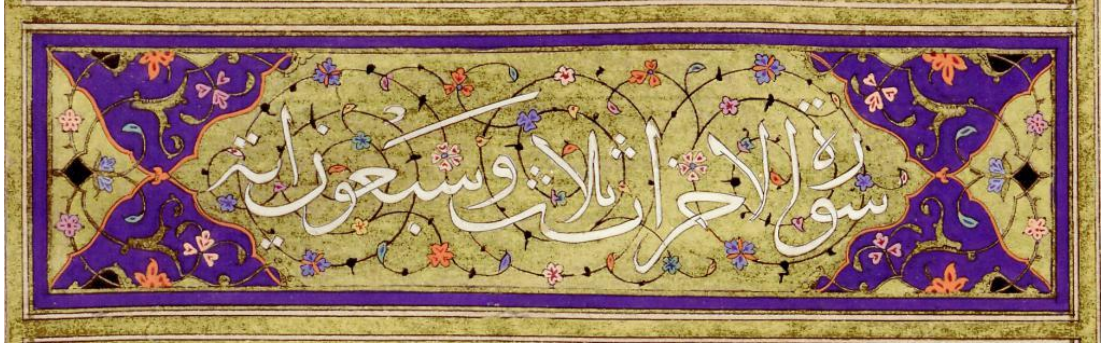 سورة الاحزاب ثلاث وسبعون اية